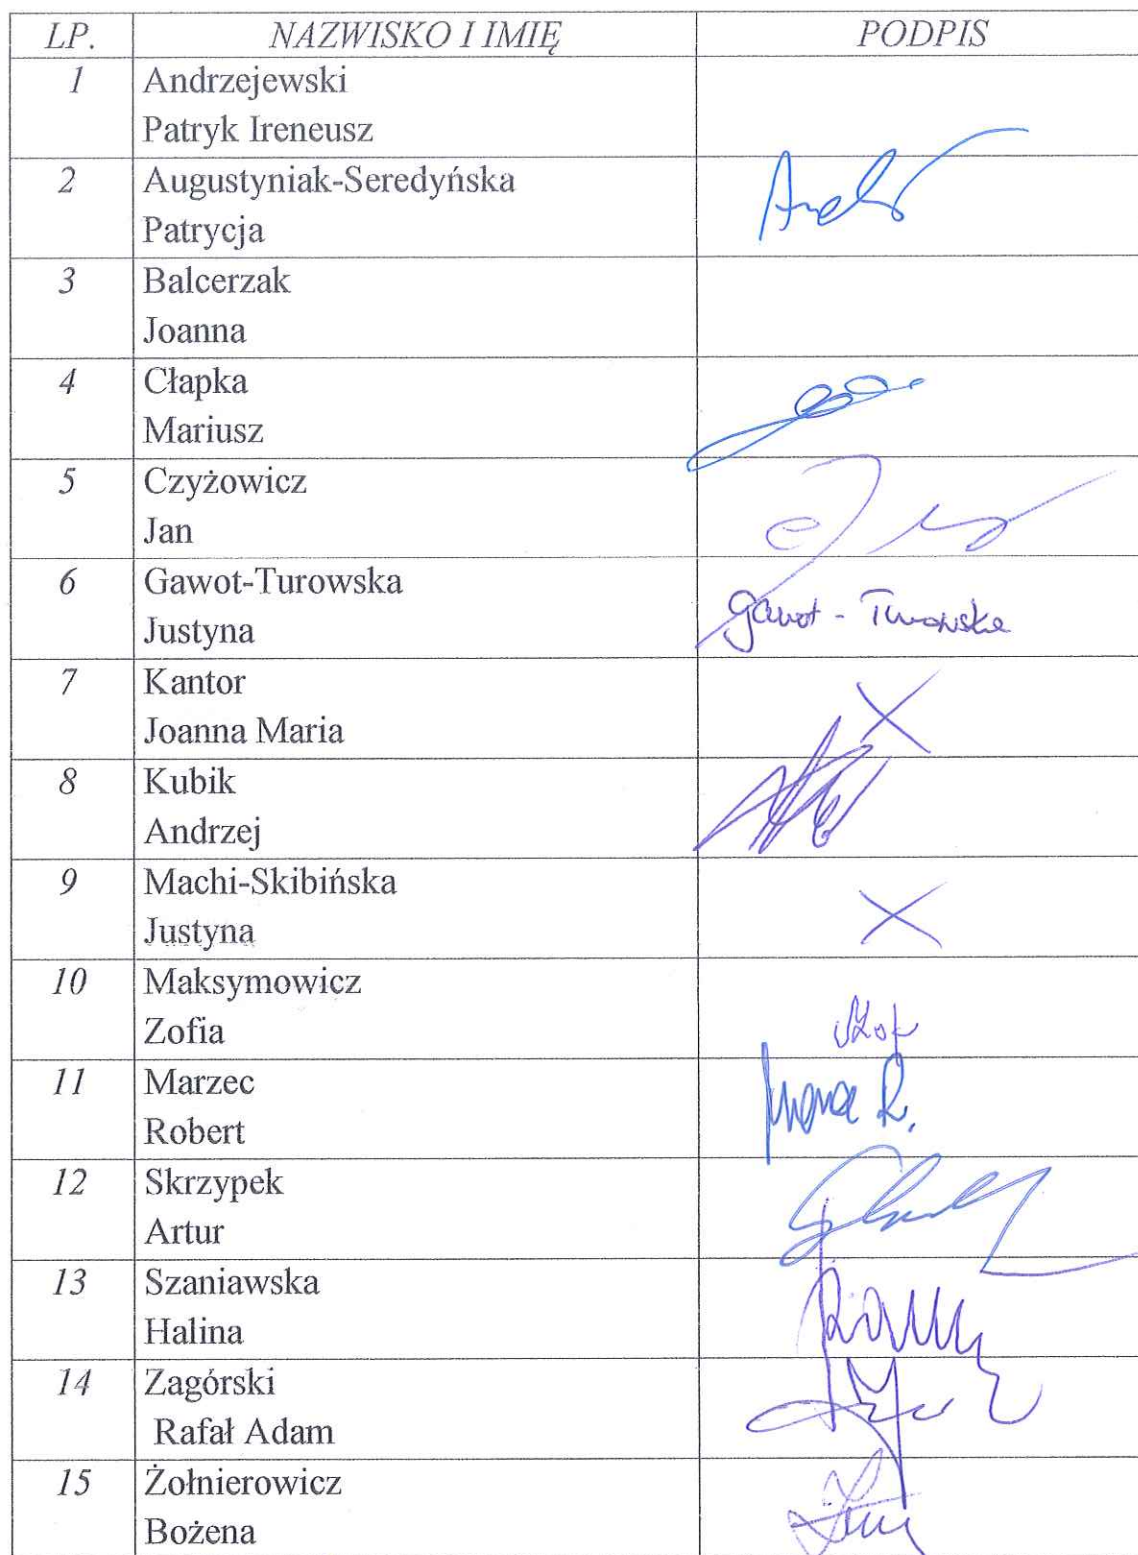 LP. NAZWISKO I IMIĘ PODPIS
1 Andrzejewski
Patryk Ireneusz
2 Augustyniak-Seredyńska
Patrycja
3 Balcerzak
Joanna
4 Cłapka
Mariusz
5 Czyżowicz
Jan
6 Gawot-Turowska
Justyna Gawot-Turowska
7 Kantor
Joanna Maria
8 Kubik
Andrzej
9 Machi-Skibińska
Justyna
10 Maksymowicz
Zofia
11 Marzec
Robert
12 Skrzypek
Artur
13 Szaniawska
Halina
14 Zagórski
Rafał Adam
15 Żołnierowicz
Bożena